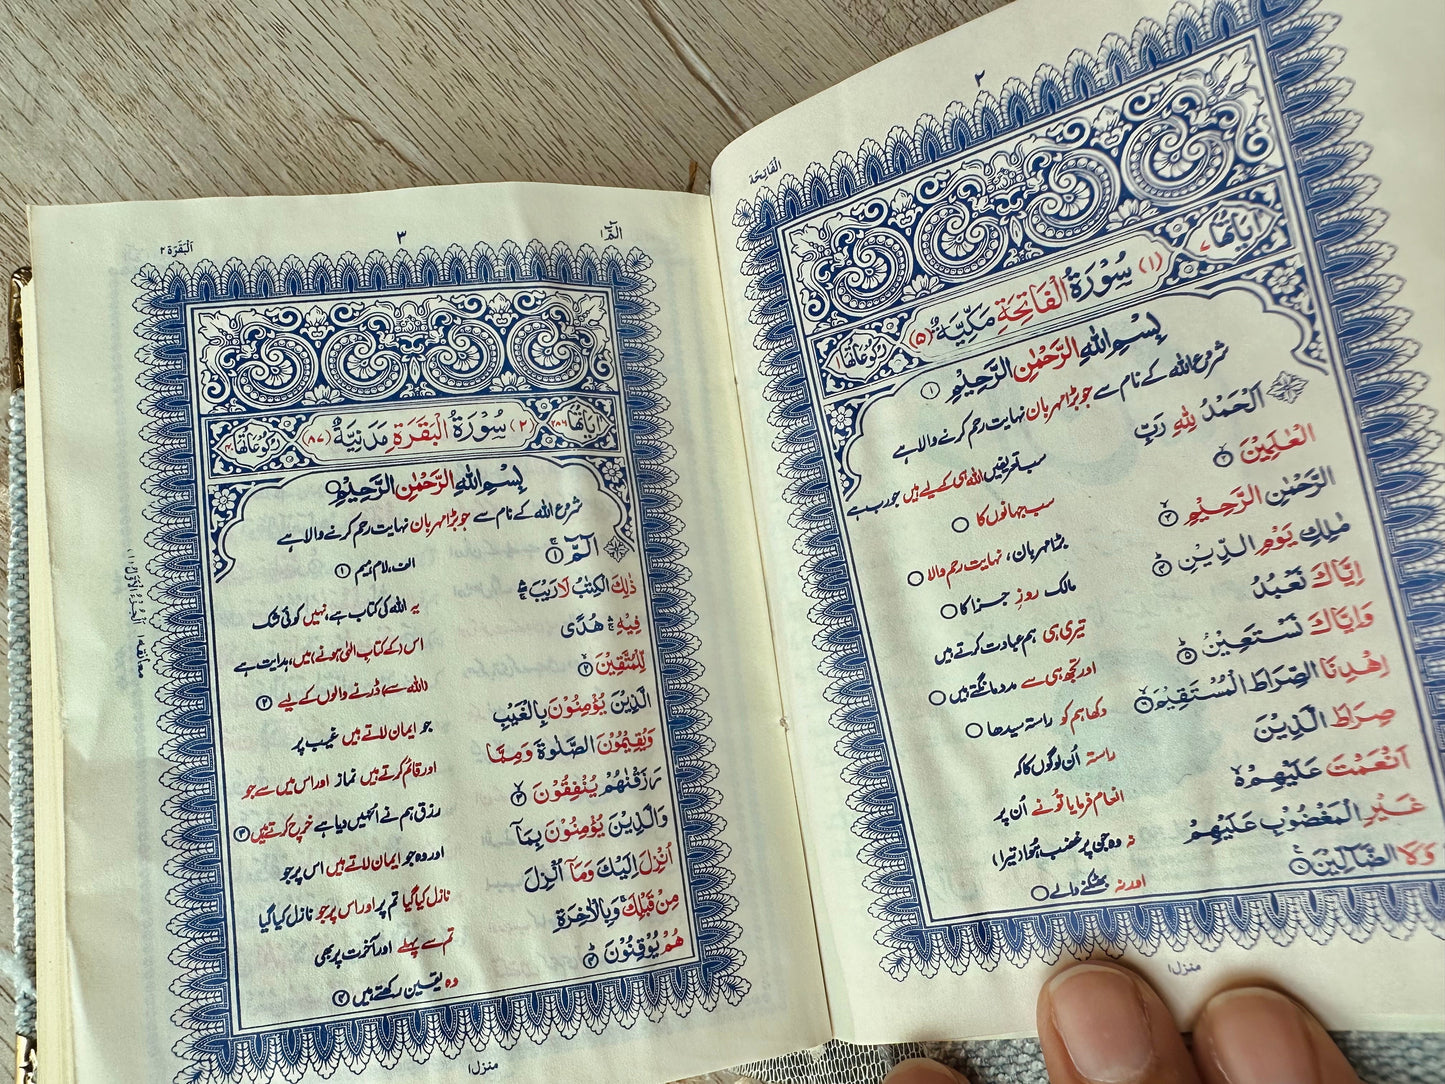 ٢
الْفَاتِحَة
اٰيَاتُهَا ٧
(١) سُوْرَةُ الْفَاتِحَةِ مَكِّيَّةٌ (٥)
رُكُوْعَاتُهَا ١
بِسْمِ اللّٰهِ الرَّحْمٰنِ الرَّحِيْمِ ١
شروع اللہ کے نام سے جو بڑا مہربان نہایت رحم کرنے والا ہے
اَلْحَمْدُ لِلّٰهِ رَبِّ سب تعریفیں اللہ ہی کے لیے ہیں جو رب ہے
الْعٰلَمِيْنَ ٢ سب جہانوں کا
الرَّحْمٰنِ الرَّحِيْمِ ٣ بڑا مہربان، نہایت رحم والا
مٰلِكِ يَوْمِ الدِّيْنِ ٤ مالک روزِ جزا کا
اِيَّاكَ نَعْبُدُ تیری ہی ہم عبادت کرتے ہیں
وَاِيَّاكَ نَسْتَعِيْنُ ٥ اور تجھ ہی سے مدد مانگتے ہیں
اِهْدِنَا الصِّرَاطَ الْمُسْتَقِيْمَ ٦ دکھا ہم کو راستہ سیدھا
صِرَاطَ الَّذِيْنَ راستہ اُن لوگوں کا کہ
اَنْعَمْتَ عَلَيْهِمْ انعام فرمایا تُو نے اُن پر
غَيْرِ الْمَغْضُوْبِ عَلَيْهِمْ نہ وہ جن پر غضب ہُوا تیرا)
وَلَا الضَّآلِّيْنَ اور نہ بھٹکنے والے
منزل ١
الٓمّٓ ١
٣
اَلْبَقَرَة ٢
اٰيَاتُهَا ٢٨٦
(٢) سُوْرَةُ الْبَقَرَةِ مَدَنِيَّةٌ (٨٧)
رُكُوْعَاتُهَا ٤٠
بِسْمِ اللّٰهِ الرَّحْمٰنِ الرَّحِيْمِ
شروع اللہ کے نام سے جو بڑا مہربان نہایت رحم کرنے والا ہے
الٓمّٓ ١ الف، لام، میم ١
ذٰلِكَ الْكِتٰبُ لَا رَيْبَ یہ اللہ کی کتاب ہے، نہیں کوئی شک
فِيْهِ هُدًى اس (کے کتابِ الٰہی ہونے) میں، ہدایت ہے
لِّلْمُتَّقِيْنَ ٢ (اللہ سے) ڈرنے والوں کے لیے ٢
الَّذِيْنَ يُؤْمِنُوْنَ بِالْغَيْبِ جو ایمان لاتے ہیں غیب پر
وَيُقِيْمُوْنَ الصَّلٰوةَ وَمِمَّا اور قائم کرتے ہیں نماز اور اس میں سے جو
رَزَقْنٰهُمْ يُنْفِقُوْنَ ٣ رزق ہم نے انہیں دیا ہے خرچ کرتے ہیں ٣
وَالَّذِيْنَ يُؤْمِنُوْنَ بِمَآ اور وہ جو ایمان لاتے ہیں اس پر جو
اُنْزِلَ اِلَيْكَ وَمَآ اُنْزِلَ نازل کیا گیا تم پر اور اس پر جو نازل کیا گیا
مِنْ قَبْلِكَ وَبِالْاٰخِرَةِ تم سے پہلے اور آخرت پر بھی
هُمْ يُوْقِنُوْنَ ٤ وہ یقین رکھتے ہیں ٤
معانقه ١
اَلْجُزْءُ الْاَوَّلُ (١)
منزل ١